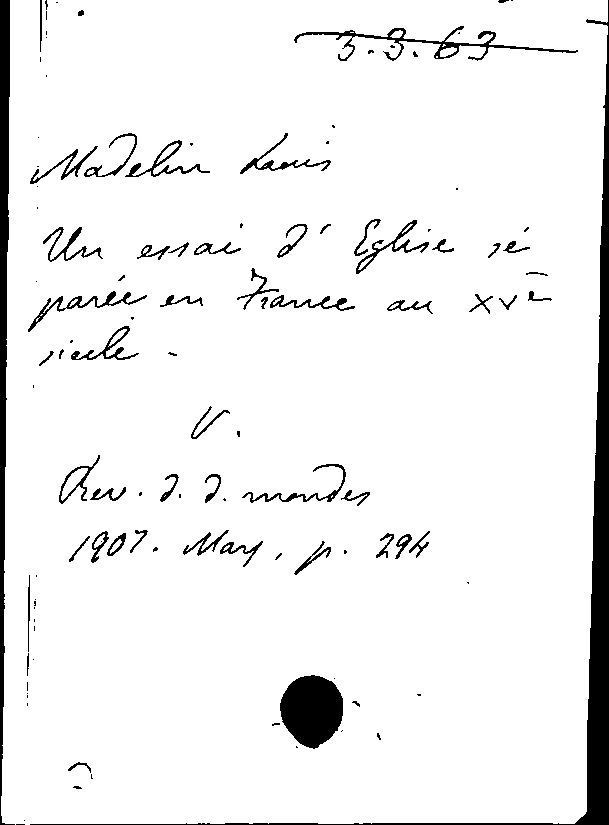 3.3.63
Madelin Louis
Un essai d' Eglise sé
parée en France au XVe
siècle -
V.
Rev. d. d. mondes
1907. Mars, p. 294